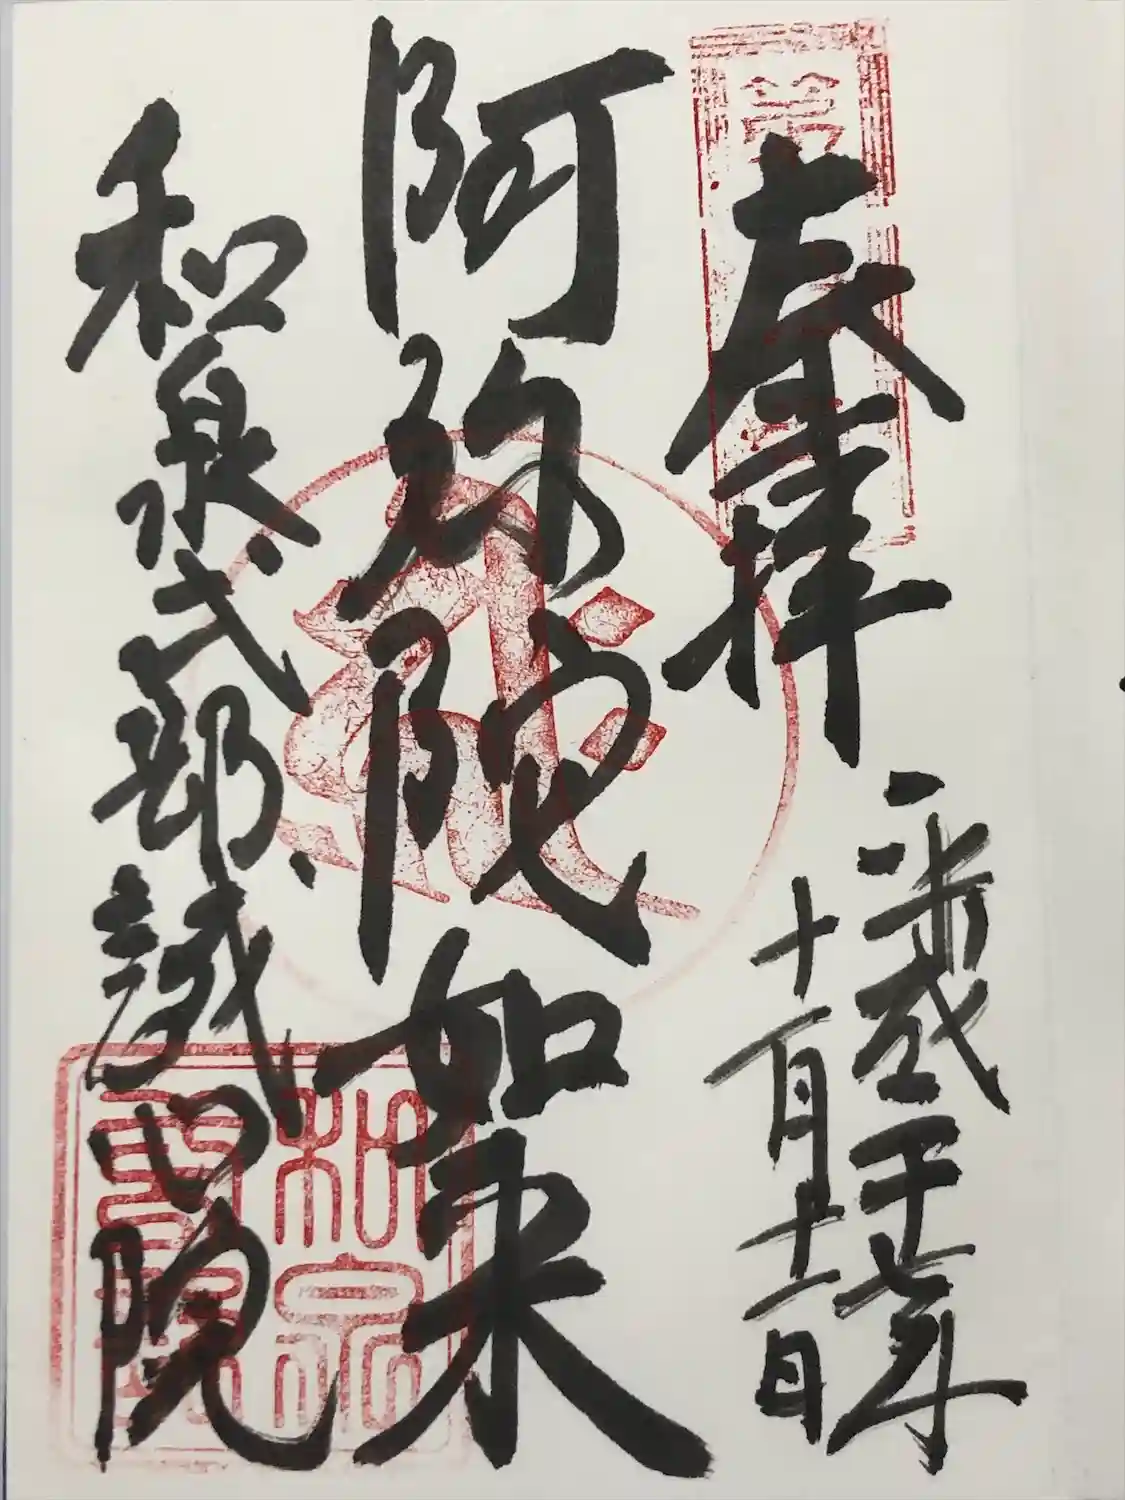 奉拝
平成二十七年
十月十一日
阿弥陀如来
和泉式部
誠心院
和泉